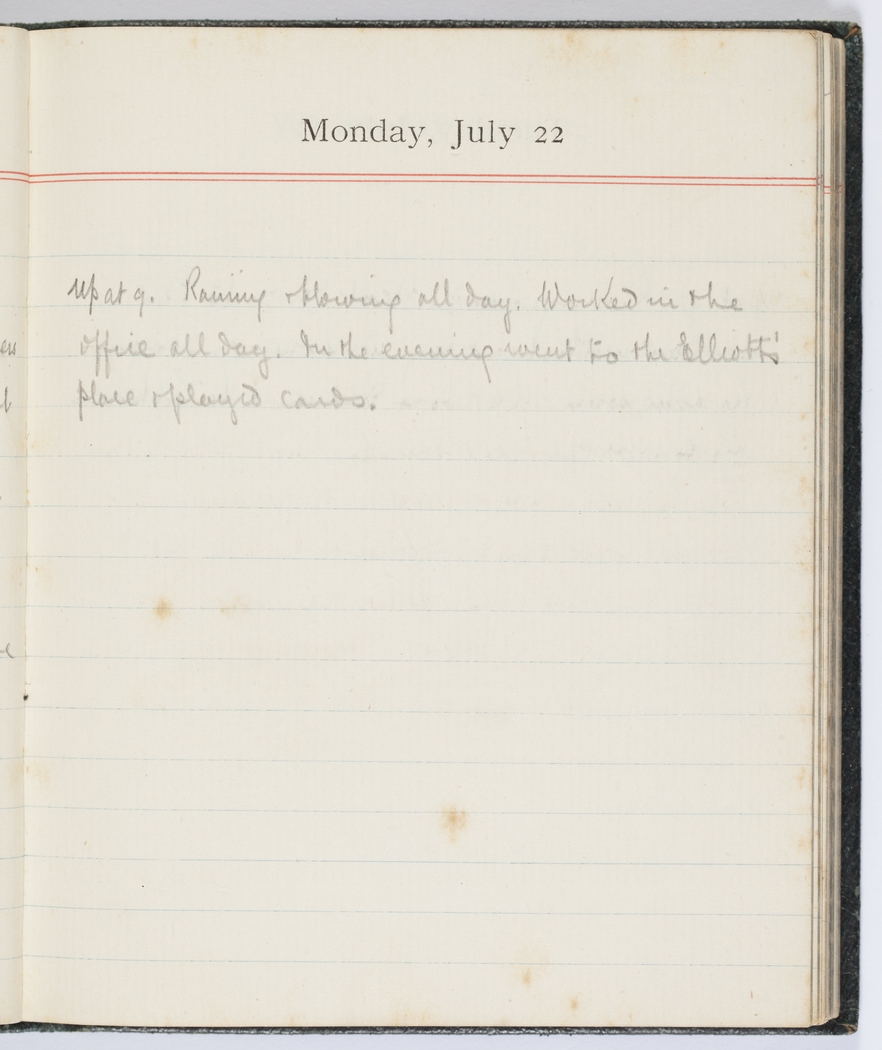 Monday, July 22
Up at 9. Raining & blowing all day. Worked in the
office all day. In the evening went to the Elliotts'
place & played cards.